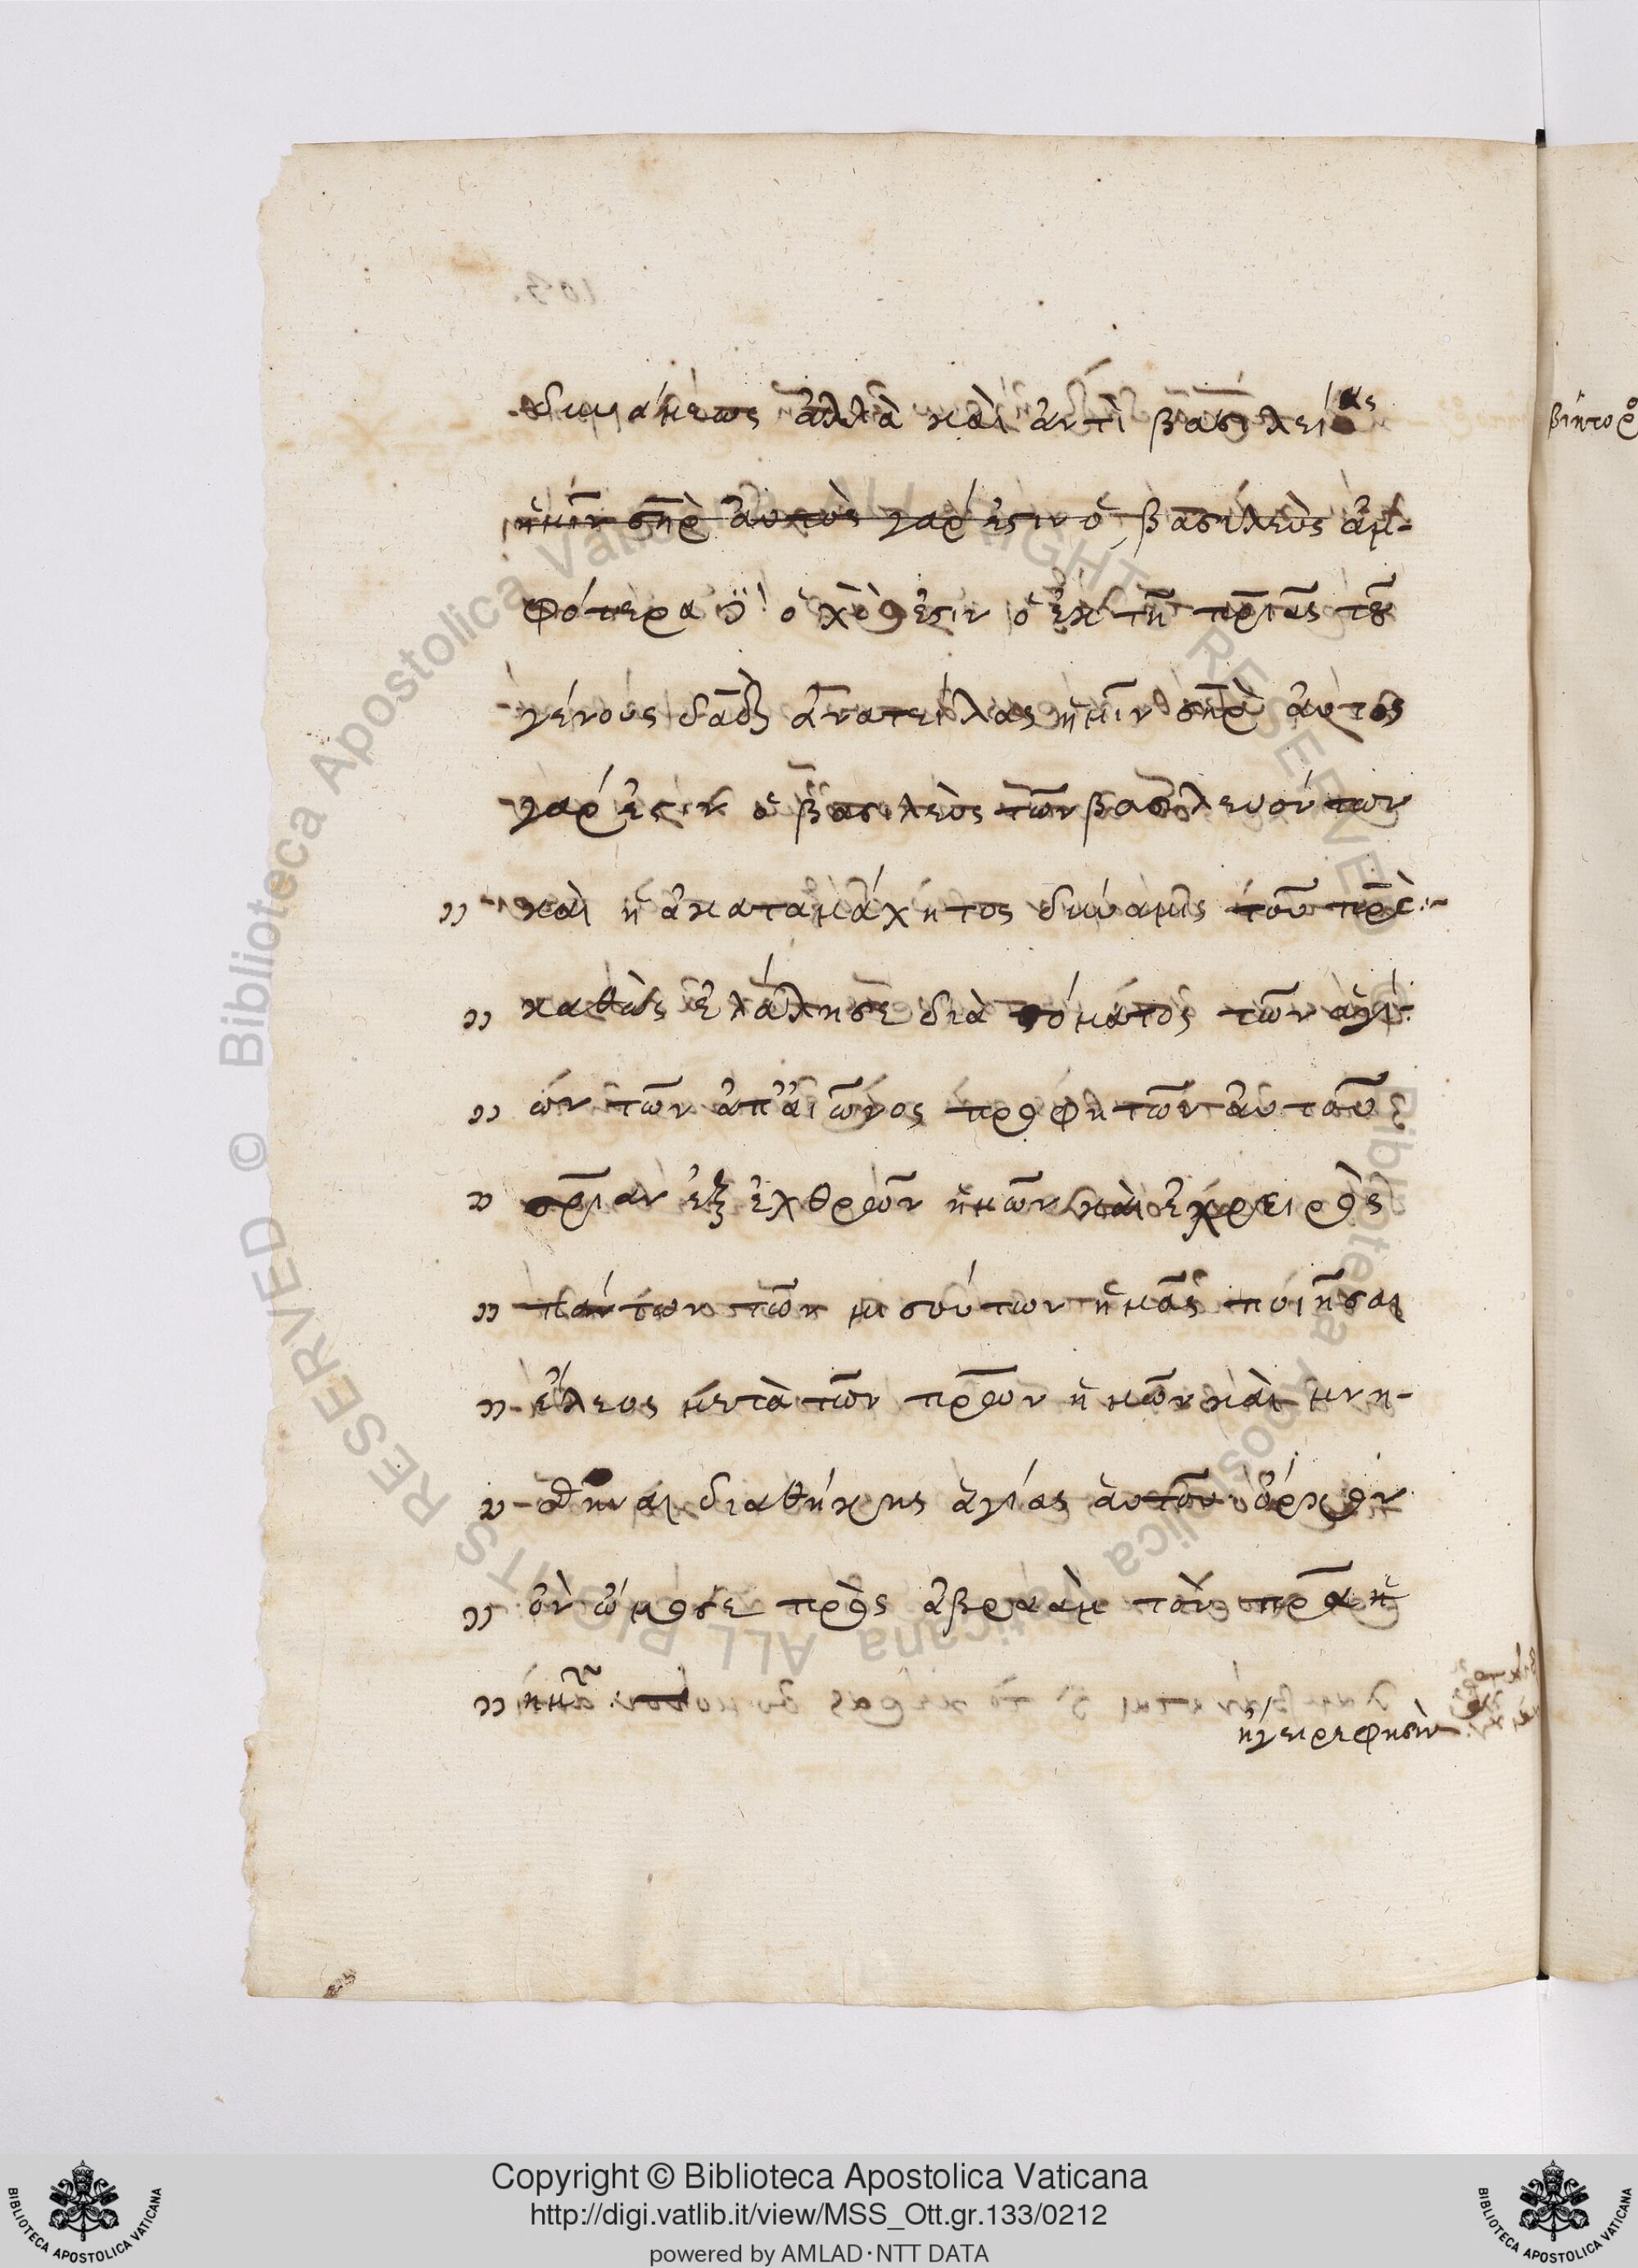 δυνάμεως ἀλλὰ καὶ ἀντὶ βασιλείας
ἡμῖν σηρ̀ αὐτὸς γάρ ἐστιν ὁ βασιλεὺς ἀμ-
φότερα ὁ χς̀ ἐστιν ὁ ἐκ τῆς πρϊᾶς τοῦ
γένους δαδ̀ ἀνατείλας ἡμῖν σηρ̀ αὐτὸς
γάρ ἐστιν ὁ βασιλεὺς τῶν βασιλευόντων
" καὶ ἡ ἀκαταμάχητος δύναμις τοῦ πρς̀:~
" καθὼς ἐλάλησε διὰ στόματος τῶν ἁγί-
" ων τῶν ἀπ' ἀιῶνος προφητῶν αὐτοῦ
" σρίαν ἐξ ἐχθρῶν ἡμῶν καὶ ἐκ χειρὸς
" πάντων τῶν μισούντων ἡμᾶς ποιῆσαι
" ἔλεος μετὰ τῶν πρων ἡμῶν καὶ μνη-
" σθῆναι διαθήκης ἁγίας αὐτοῦ ὅρκον
" ὃν ὤμοσε πρὸς ἀβραὰμ τὸν πρα ἡ
" ἡμῶν
ἤγειρε φησὶν
βίκτορος
Copyright © Biblioteca Apostolica Vaticana
http://digi.vatlib.it/view/MSS_Ott.gr.133/0212
powered by AMLAD·NTT DATA
BIBLIOTECA APOSTOLICA VATICANA
BIBLIOTECA APOSTOLICA VATICANA
© Biblioteca Apostolica Vaticana ALL RIGHTS RESERVED
© Biblioteca Apostolica Vaticana ALL RIGHTS RESERVED